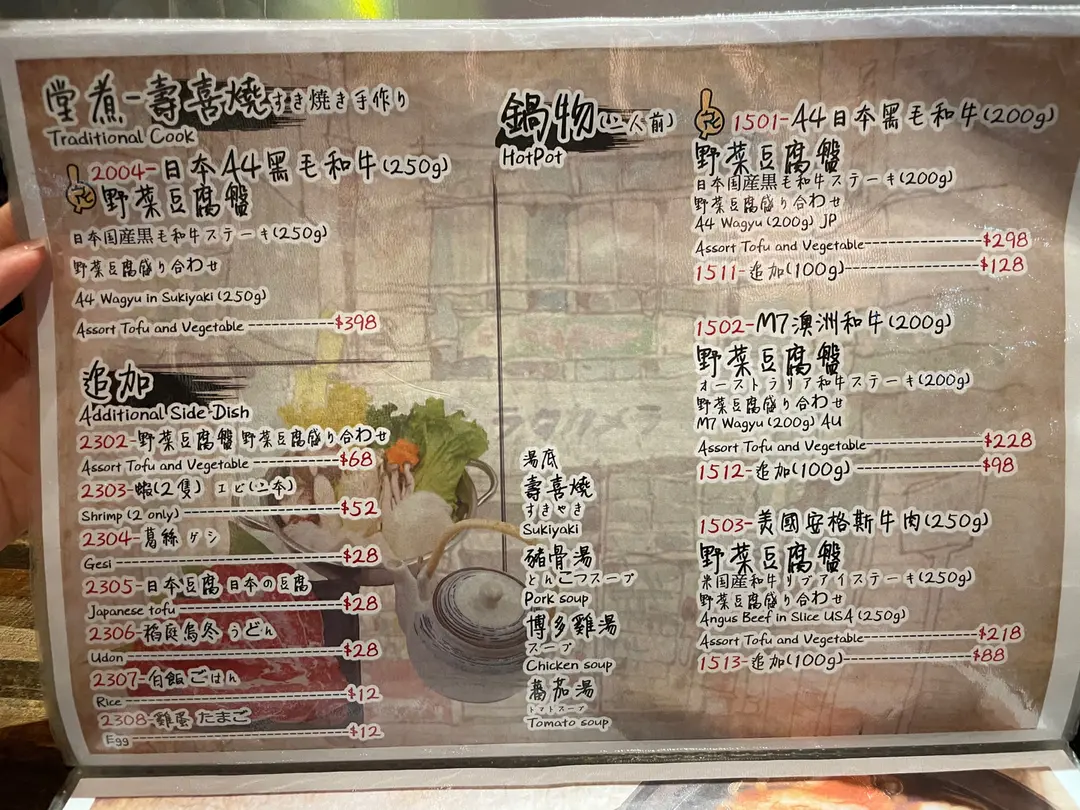 堂煮-壽喜燒すき焼き手作り
Traditional Cook
2004-日本A4黑毛和牛(250g)
野菜豆腐盤
日本国産黒毛和牛ステーキ(250g)
野菜豆腐盛り合わせ
A4 Wagyu in Sukiyaki (250g)
Assort Tofu and Vegetable------------$398
追加
Additional Side Dish
2302-野菜豆腐盤 野菜豆腐盛り合わせ
Assort Tofu and Vegetable------------$68
2303-蝦(2隻) エビ(二本)
Shrimp (2 only)------------$52
2304-葛絲 ケシ
Gesi------------$28
2305-日本豆腐 日本の豆腐
Japanese tofu------------$28
2306-稻庭烏冬 うどん
Udon------------$28
2307-白飯 ごはん
Rice------------$12
2308-雞蛋 たまご
Egg------------$12
鍋物(い二人前)
HotPot
湯底
壽喜燒
すきやき
Sukiyaki
豬骨湯
とんこつスープ
Pork soup
博多雞湯
スープ
Chicken soup
蕃茄湯
トマトスープ
Tomato soup
1501-A4日本黑毛和牛(200g)
野菜豆腐盤
日本国産黒毛和牛ステーキ(200g)
野菜豆腐盛り合わせ
A4 Wagyu (200g) JP
Assort Tofu and Vegetable------------$298
1511-追加(100g)------------$128
1502-M7澳洲和牛(200g)
野菜豆腐盤
オーストラリア和牛ステーキ(200g)
野菜豆腐盛り合わせ
M7 Wagyu (200g) AU
Assort Tofu and Vegetable------------$228
1512-追加(100g)------------$98
1503-美國安格斯牛肉(250g)
野菜豆腐盤
米国産和牛リブアイステーキ(250g)
野菜豆腐盛り合わせ
Angus Beef in Slice USA (250g)
Assort Tofu and Vegetable------------$218
1513-追加(100g)------------$88